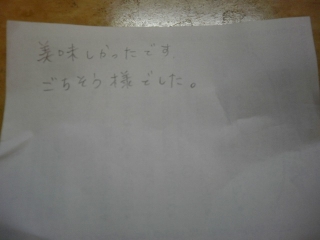 美味しかったです
ごちそう様でした。